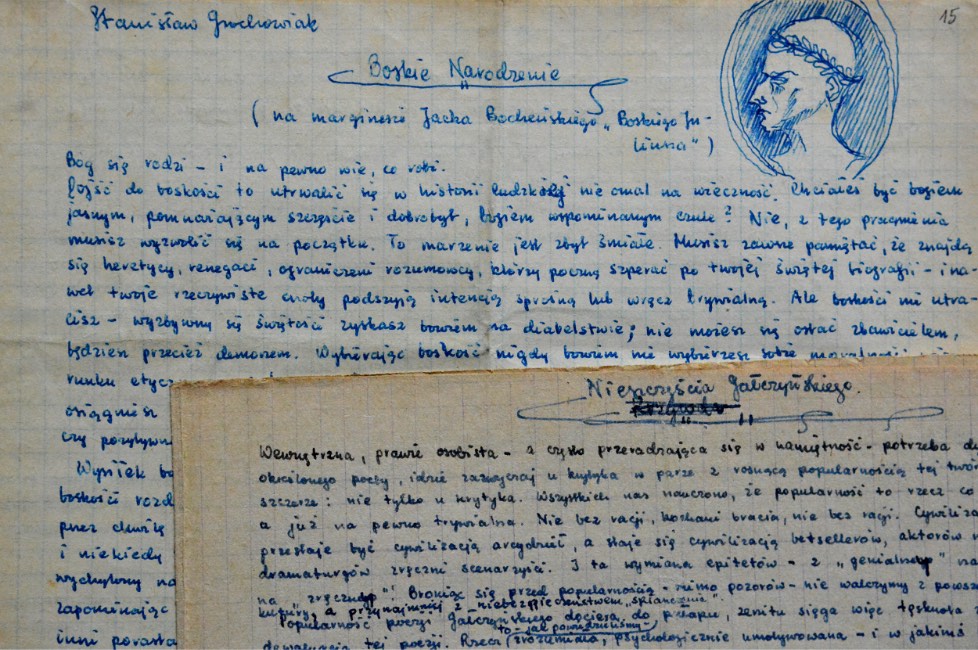 Stanisław Grochowiak
15
Boskie Narodzenie
(na marginesie Jacka Bocheńskiego „Boskiego Ju-
liusza")
Bóg się rodzi – i na pewno wie, co robi.
Dojść do boskości to utrwalić się w historii ludzkiej nie omal na wieczność. Chciałeś być bogiem
jasnym, pomnażającym szczęście i dobrobyt, bogiem wspominanym czule? Nie, z tego pragnienia
musisz wyzwolić się na początku. To marzenie jest zbyt śmiałe. Musisz zawsze pamiętać, że znajdą
się heretycy, renegaci, ograniczeni rozumowcy, którzy poczną szperać po twojej świętej biografii – i na-
wet twoje rzeczywiste cnoty podszyją intencją sprośną lub wręcz trywialną. Ale boskości nie utra-
cisz – wyzbywszy się świętości zyskasz bowiem na diabelstwie; nie możesz się ostać zbawicielem,
będziesz przecież demonem. Wybierając boskość nigdy bowiem nie wybierzesz sobie
runku etycz
osiągniesz
czy pozytywn
Wysiłek bo
boskości
przez chwilę
i niekiedy
wychylony na
zapominając
inni porasta
Nieszczęścia Gałczyńskiego.
Wewnętrzna, prawie osobista – a często przeradzająca się w namiętność – potrzeba de
określonego poety, idzie zazwyczaj u krytyka w parze z rosnącą popularnością tej twór
szczerze: nie tylko u krytyka. Wszystkich nas nauczono, że popularność to rzecz co
a już na pewno trywialna. Nie bez racji, kochani bracia, nie bez racji. Cywiliza
przestaje być cywilizacją arcydzieł, a staje się cywilizacją bestsellerów, aktorów
dramaturgów zręczni scenarzyści. I ta wymiana epitetów – z „genialnego" na
na „zręcznego"! Broniąc się przed popularnością – mimo pozorów – nie walczymy z powsz
kultury, a przynajmniej z niebezpieczeństwem „spłaszczenia".
Popularność poezji Gałczyńskiego dociera do pułapu, zenitu sięga więc tęsknota
dewaluacją tej poezji. Rzecz (to – jak powiedzieliśmy – zrozumiała, psychologicznie umotywowana – i w jakimś